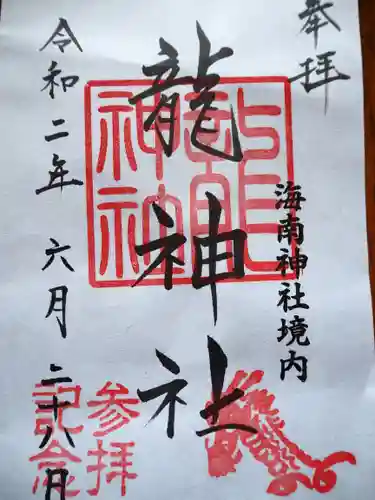 奉拝
海南神社境内
龍神社
龍神社
参拝
記念
令和二年六月二十八月